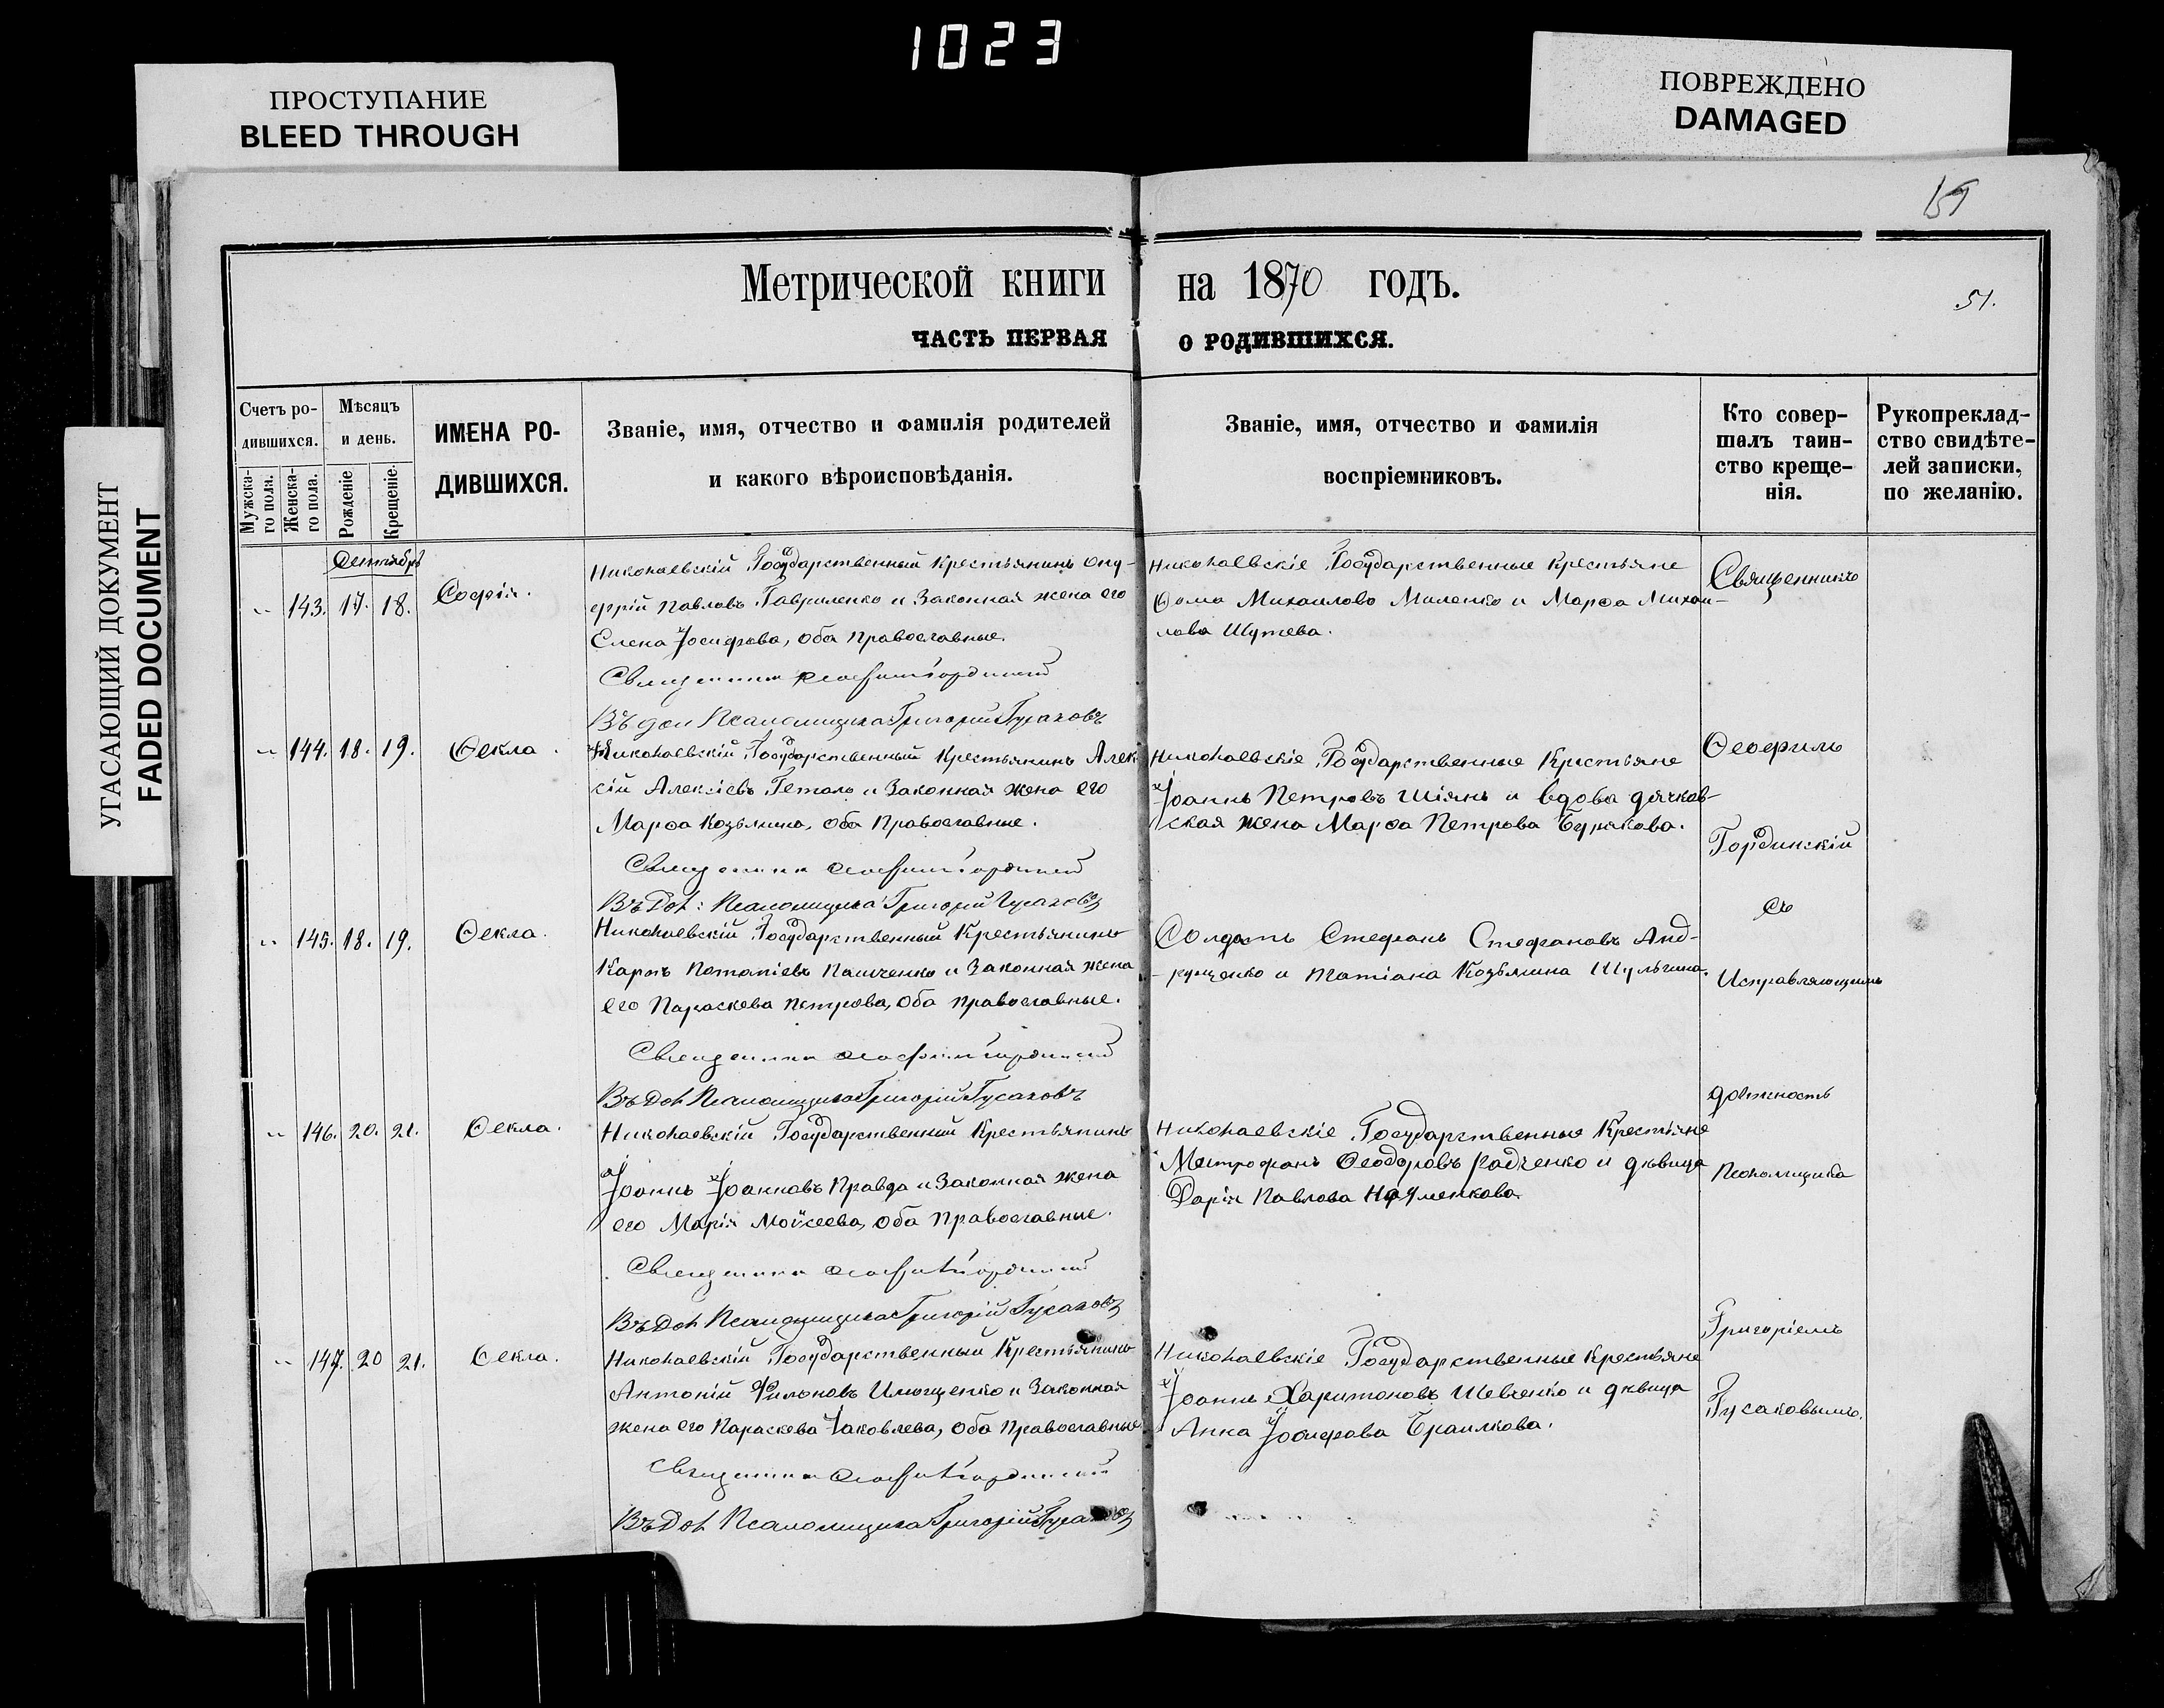 1023
ПРОСТУПАНИЕ
BLEED THROUGH
ПОВРЕЖДЕНО
DAMAGED
УГАСАЮЩИЙ ДОКУМЕНТ
FADED DOCUMENT
51.
Метрической книги на 1870 годъ.
ЧАСТЬ ПЕРВАЯ О РОДИВШИХСЯ.
Счетъ ро-
дившихся.
Мужска-
го пола.
Женска-
го пола.
Мѣсяцъ
и день.
Рожденіе
Крещеніе.
ИМЕНА РО-
ДИВШИХСЯ.
Званіе, имя, отчество и фамилія родителей
и какого вѣроисповѣданія.
Званіе, имя, отчество и фамилія
воспріемниковъ.
Кто совер-
шалъ таин-
ство креще-
нія.
Рукопреклад-
ство свидѣте-
лей записки,
по желанію.
Сентябрь
143. 17. 18. Софія.
Николаевскій Государственный Крестьянинъ Ону-
фрій Павловъ Гавриленко и Законная жена его
Елена Іосифова, оба Православные.
Священникъ Ѳеофилъ Гординскій
Въ дол Псаломщика Григорій Гусаковъ
Николаевскіе Государственные Крестьяне
Ѳома Михаиловъ Миленко и Марѳа Михаи-
лова Шутева.
144. 18. 19. Ѳекла.
Николаевскій Государственный Крестьянинъ Алек
сій Алексіевъ Гетало и Законная жена его
Марѳа Козьмина, оба Православные.
Священникъ Ѳеофилъ Гординскій
Въ Дол: Псаломщика Григорій Гусаковъ
Николаевскіе Государственные Крестьяне
Іоаннъ Петровъ Шіянъ и вдова дячков-
ская жена Марѳа Петрова Бурякова.
145. 18. 19. Ѳекла.
Николаевскій Государственный Крестьянинъ
Карпъ Потапіевъ Панченко и Законная жена
его Параскева Петрова, оба Православные.
Священникъ Ѳеофилъ Гординскій
Въ Дол Псаломщика Григорій Гусаковъ
Солдатъ Стефанъ Стефановъ Анд-
рущенко и Татіана Козьмина Шульгина.
146. 20. 21. Ѳекла.
Николаевскій Государственный Крестьянинъ
Іоаннъ Іоанновъ Правда и Законная жена
его Марія Моѵсеева, оба Православные.
Священникъ Ѳеофилъ Гординскій
Въ Дол Псаломщика Григорій Гусаковъ
Николаевскіе Государственные Крестьяне
Митрофанъ Ѳеодоровъ Радченко и дѣвица
Дарія Павлова Науменкова.
147. 20 21. Ѳекла.
Николаевскій Государственный Крестьянинъ
Антоній Филоновъ и Законная
жена его Параскева Іаковлева, оба Православные
Священникъ Ѳеофилъ Гординскій
Въ Дол Псаломщика Григорій Гусаковъ
Николаевскіе Государственные Крестьяне
Іоаннъ Харитоновъ Шевченко и дѣвица
Анна Іосифова Браилкова.
Священникъ
Ѳеофилъ
Гординскій
съ
Исправляющимъ
должность
Псаломщика
Григоріемъ
Гусаковымъ.